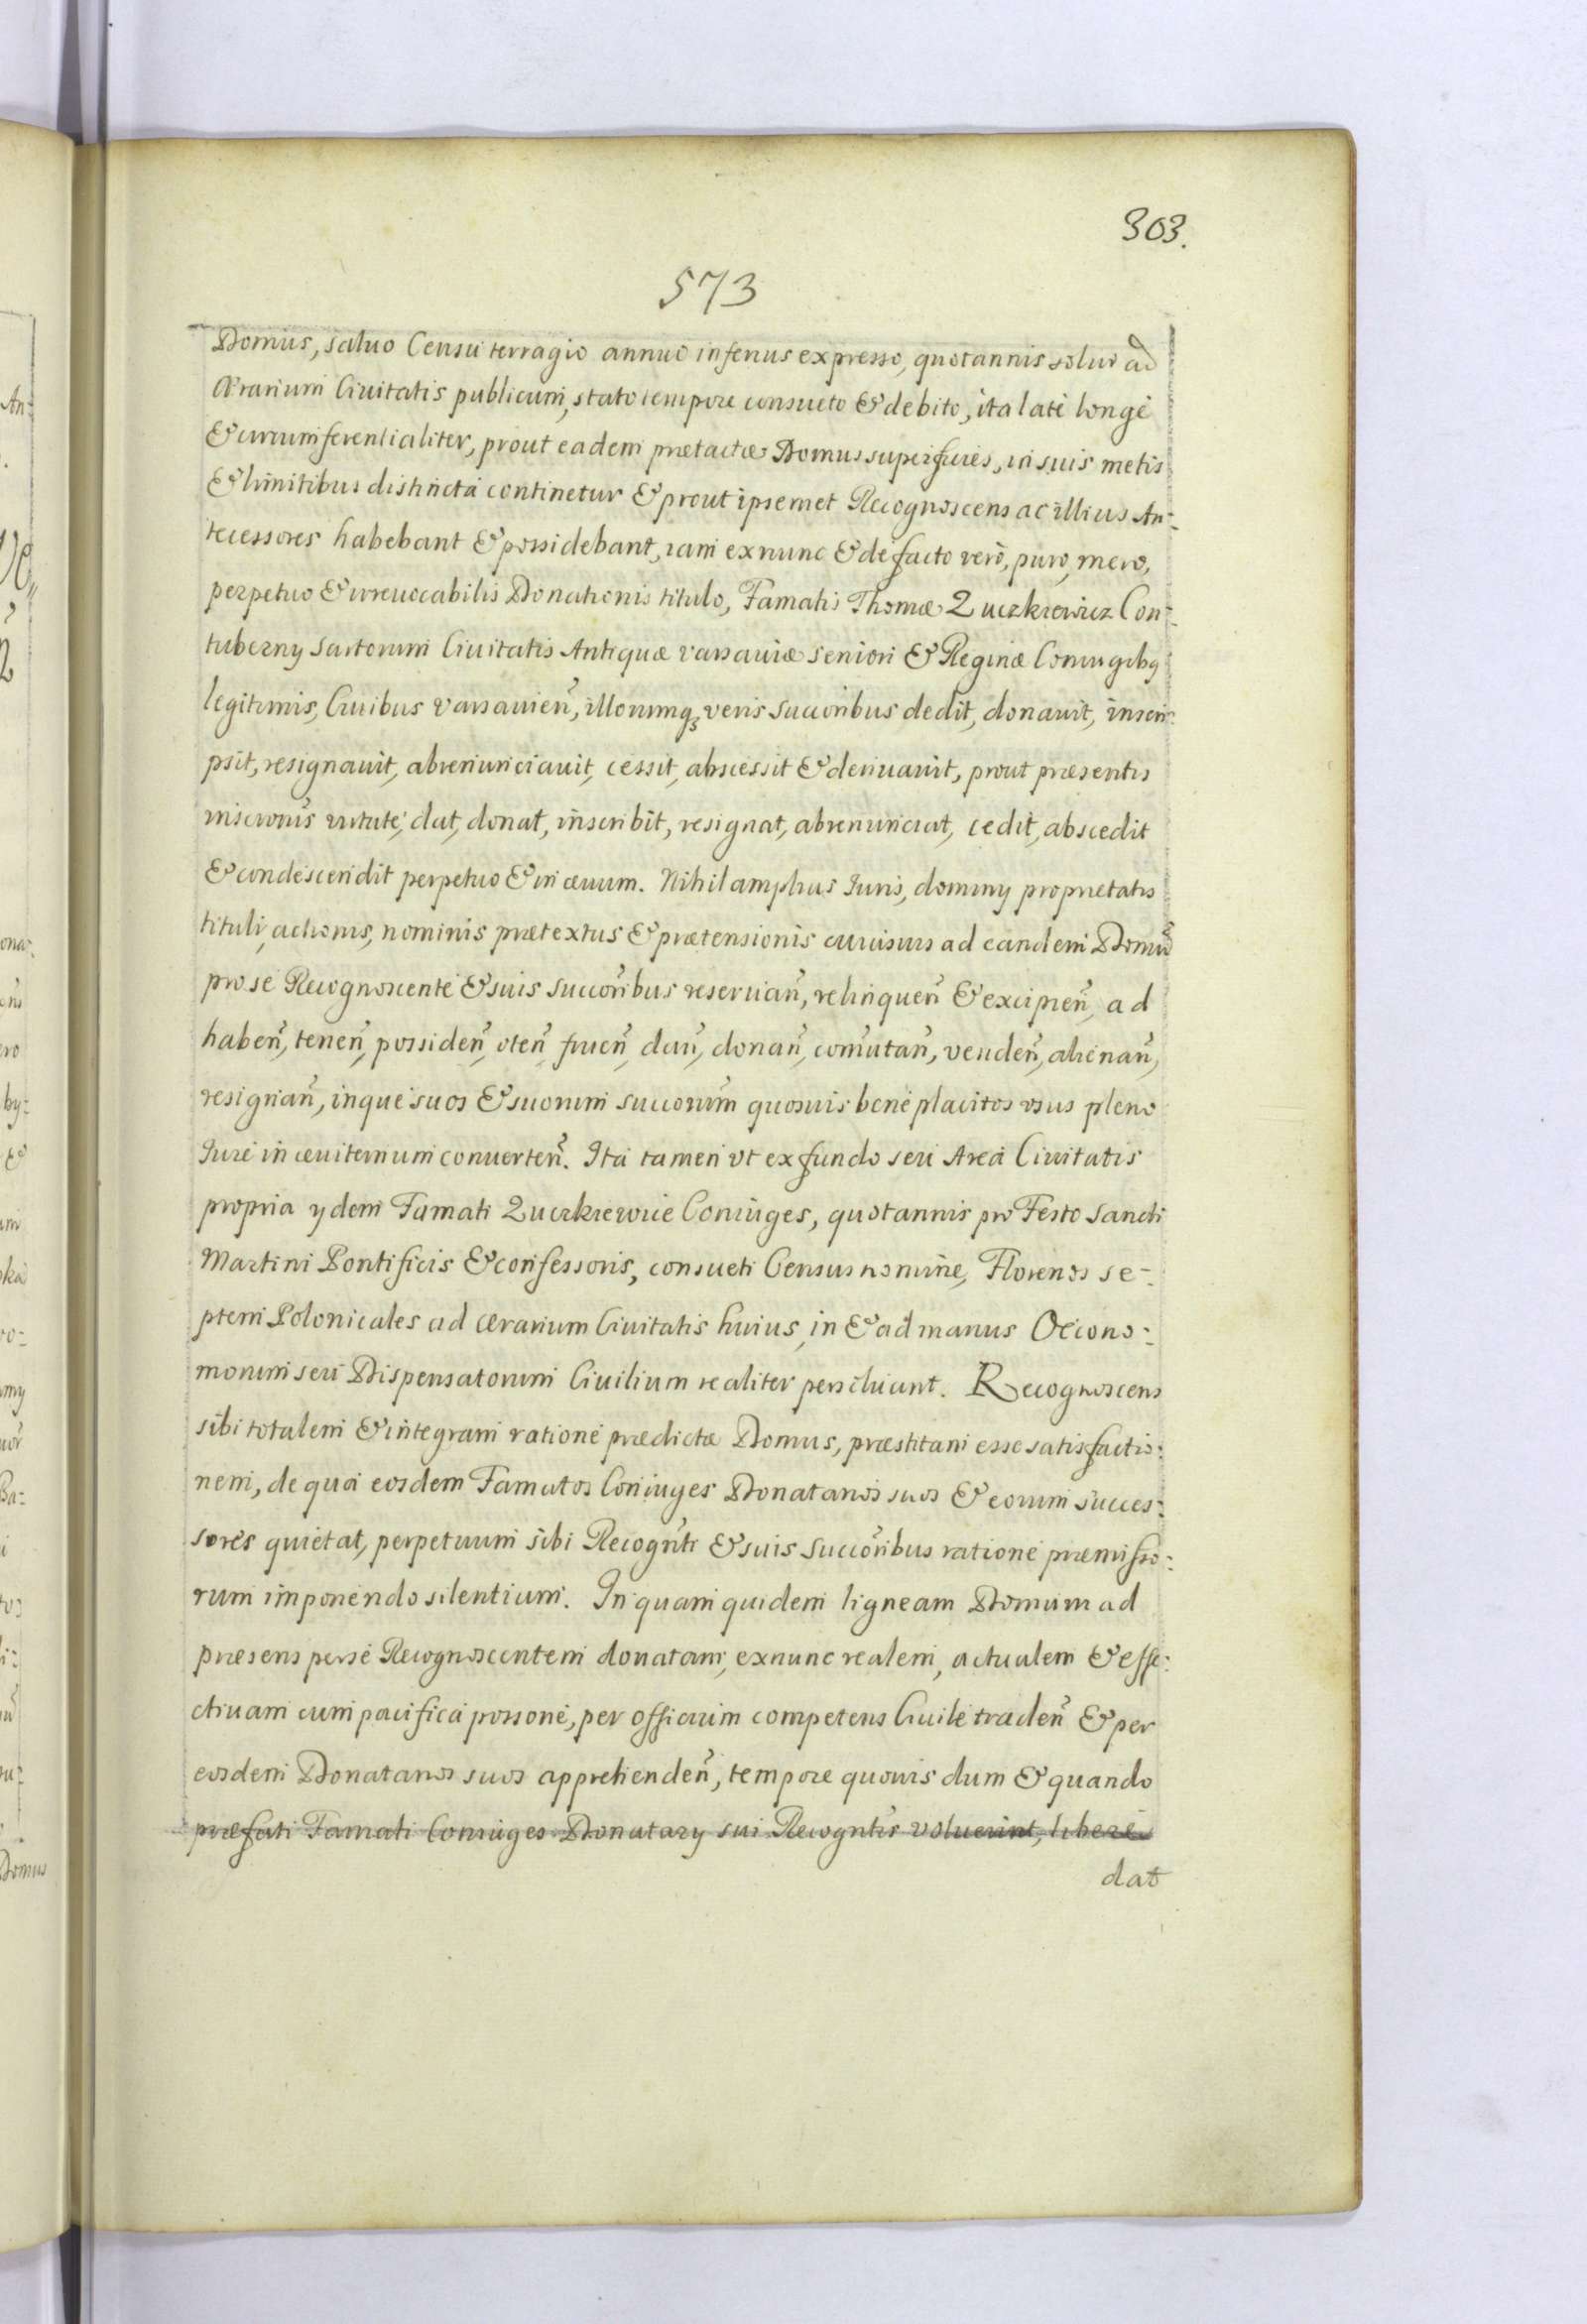 303.
573
Domus, saluo Censu terragio annuo inferius expresso, quotannis solui ad
Ærarium Ciuitatis publicum, stato tempore consueto & debito, ita latè longè
& circumferentialiter, prout eadem prætactæ Domus superficies, in suis metis
& limitibus distincta continetur & prout ipsemet Recognoscens ac illius An-
tecessores habebant & possidebant, iam exnunc & de facto verò, puro, mero,
perpetuo & irreuocabilis Donationis titulo, Famatis Thomæ Zuczkiewicz Con-
tuberny Sartorum Ciuitatis Antiquæ Varsauiæ seniori & Reginæ Coniugibq
legitimis, Ciuibus Varsauien̄, illorumq; veris Succoribus dedit, donauit, inscri-
psit, resignauit, abrenunciauit, cessit, abscessit & deriuauit, prout præsentis
inscronis virtute, dat, donat, inscribit, resignat, abrenunciat, cedit, abscedit
& condescendit perpetuo & in æuum. Nihil amplius Iuris, dominy proprietatis
tituli, actionis, nominis prætextus & prætensionis cuiusuis ad eandem Domū
pro se Recognoscente & suis succoribus reseruan̄, relinquen̄ & excipien̄, ad
haben̄, tenen̄, possiden̄, vten̄ fruen̄, dan̄, donan̄, com̄utan̄, venden̄, alienan̄,
resignan̄, inque suos & suorum succorum quosuis beneplacitos vsus pleno
Iure in æuiternum conuerten̄. Ita tamen vt ex fundo seu Area Ciuitatis
propria ydem Famati Zuczkiewicie Coniuges, quotannis pro Festo Sancti
Martini Pontificis & confessoris, consueti Census nomine, Florenos se-
ptem Polonicales ad ærarium Ciuitatis huius, in & ad manus Oecono-
morum seu Dispensatorum Ciuilium realiter persoluant. Recognoscens
sibi totalem & integram ratione prædictæ Domus, præstitam esse satisfactio-
nem, de qua eosdem Famatos Coniuges Donatarios suos & eorum succes-
sores quietat, perpetuum sibi Recognti & suis Succoribus ratione præmisso-
rum imponendo silentium. In quam quidem ligneam Domum ad
præsens per se Recognoscentem donatam, exnunc realem, actualem & effe-
ctiuam cum pacifica possone, per officium competens Ciuile traden̄ & per
eosdem Donatarios suos apprehenden̄, tempore quouis dum & quando
præfati Famati Coniuges Donatary sui Recogntis voluerint, liberè
dat